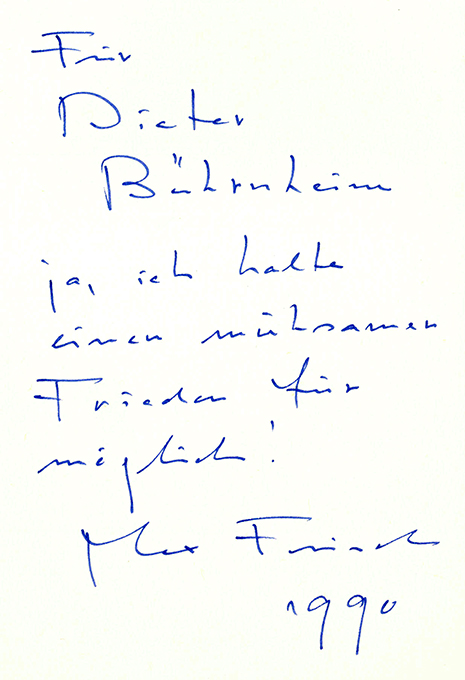 Für
Dieter
Bührnheim
ja, ich halte
einen mühsamen
Frieden für
möglich!
Max Frisch
1990